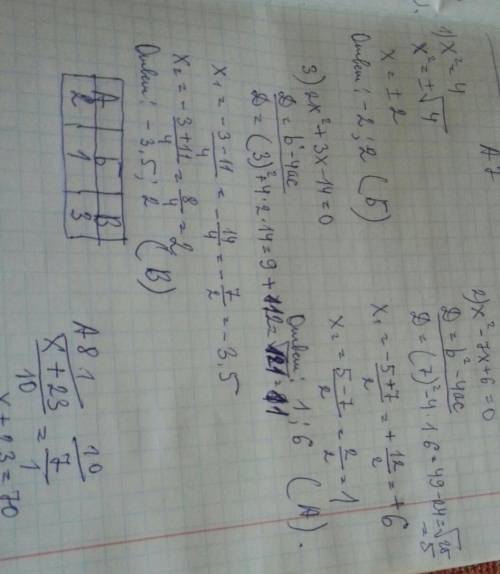 A7
1) x² = 4
x² = ±√4
x = ±2
Ответ: -2; 2 (Б)
2) x² - 7x + 6 = 0
D = b² - 4ac
D = (7)² - 4·1·6 = 49 - 24 = √25 = 5
x₁ = -5+7/2 = +12/2 = +6
x₂ = 5-7/2 = 2/2 = 1
Ответ: 1; 6 (А).
3) 2x² + 3x - 14 = 0
D = b² - 4ac
D = (3)² + 4·2·14 = 9 + 112 = √121 = 11
x₁ = -3-11/4 = -14/4 = -7/2 = -3.5
x₂ = -3+11/4 = 8/4 = 2
Ответ: -3.5; 2 (В)
А Б В
2 1 3
A8 1
x+23/10 = 7/1
10
x + 23 = 70